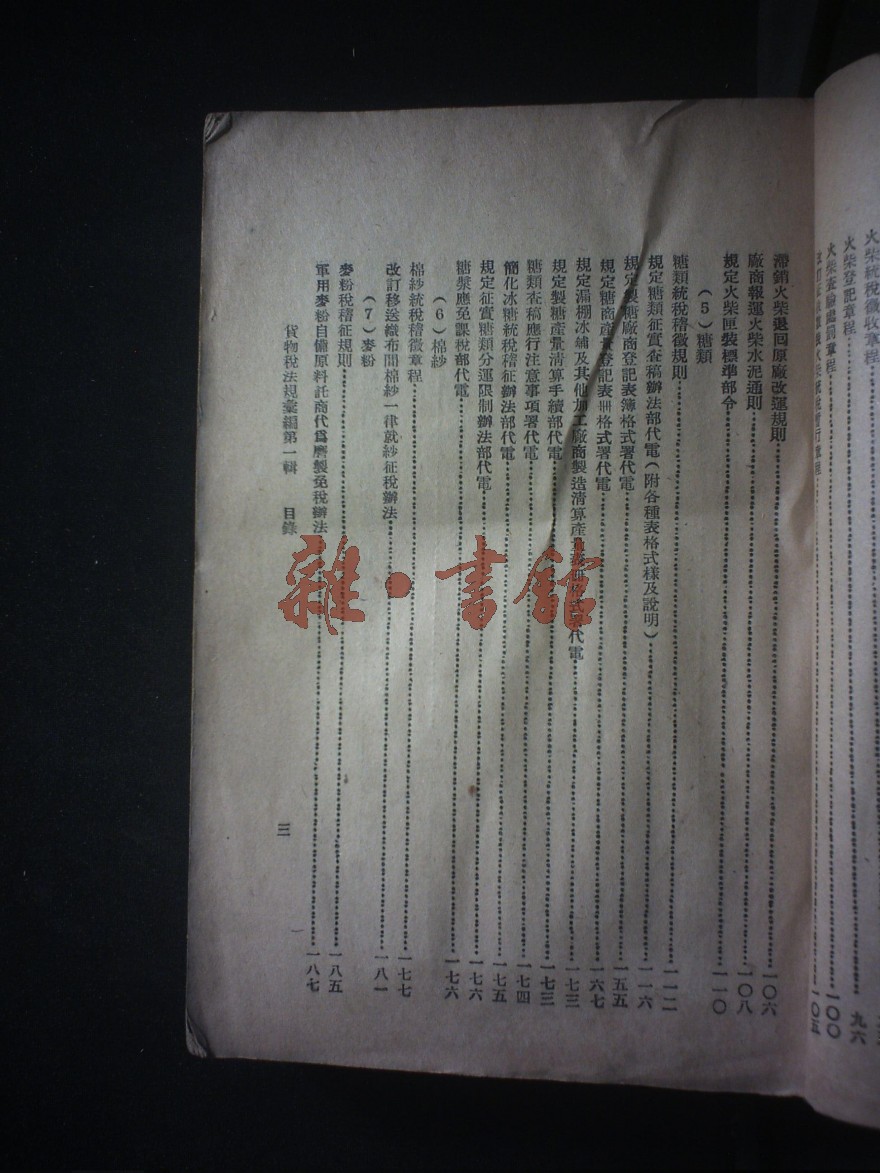 火柴統稅徵收章程
火柴登記章程 九六
火柴查驗處罰章程 一〇〇
一〇五
滯銷火柴退回原廠改運規則 一〇六
廠商報運火柴水泥通則 一〇八
規定火柴匣裝標準部令 一一〇
（5）糖類
糖類統稅稽徵規則 一一二
規定糖類征實查稿辦法部代電（附各種表格式樣及說明） 一一六
規定製糖廠商登記表簿格式署代電 一五五
規定糖商產量登記表冊格式署代電 一六七
規定漏棚冰鋪及其他加工廠商製造清算產量表冊格式署代電 一七三
規定製糖產量清算手續部代電 一七三
糖類查稿應行注意事項署代電 一七四
簡化冰糖統稅稽征辦法部代電 一七五
規定征實糖類分運限制辦法部代電 一七六
糖漿應免課稅部代電 一七六
（6）棉紗
棉紗統稅稽徵章程 一七七
改訂移送織布間棉紗一律就紗征稅辦法 一八一
（7）麥粉
麥粉稅稽征規則 一八五
軍用麥粉自備原料託商代為磨製免稅辦法 一八七
貨物稅法規彙編第一輯 目錄
三
雜·書館